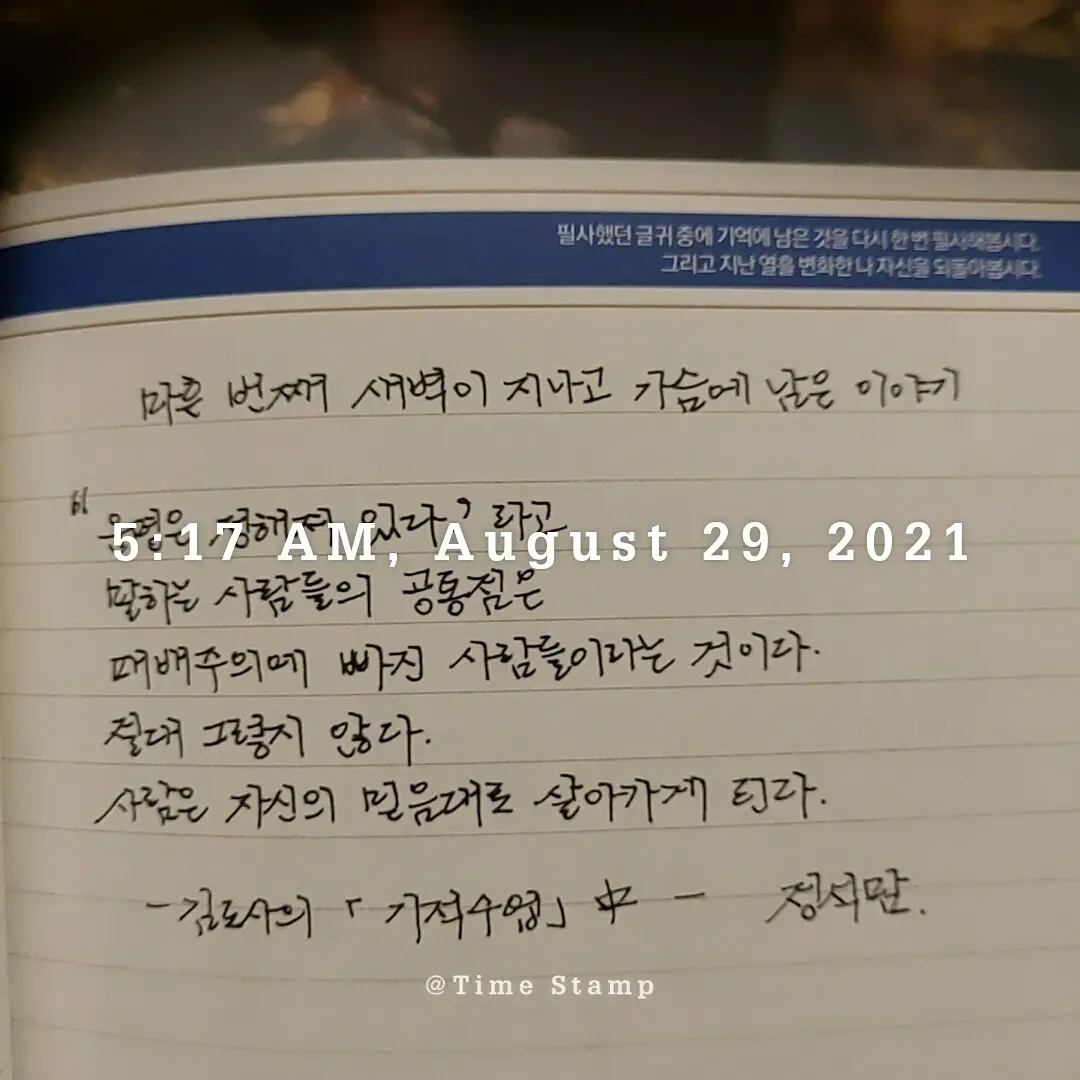 필사했던 글귀 중에 기억에 남은 것을 다시 한 번 필사해봅시다.
그리고 지난 열흘 변화한 나 자신을 되돌아봅시다.
마흔 번째 새벽이 지나고 가슴에 남은 이야기
운명은 정해져 있다' 라고
5:17 AM, August 29, 2021
말하는 사람들의 공통점은
패배주의에 빠진 사람들이라는 것이다.
절대 그렇지 않다.
사람은 자신의 믿음대로 살아가게 된다.
- 김도사의 「기적수업」 中 - 정석만.
@Time Stamp